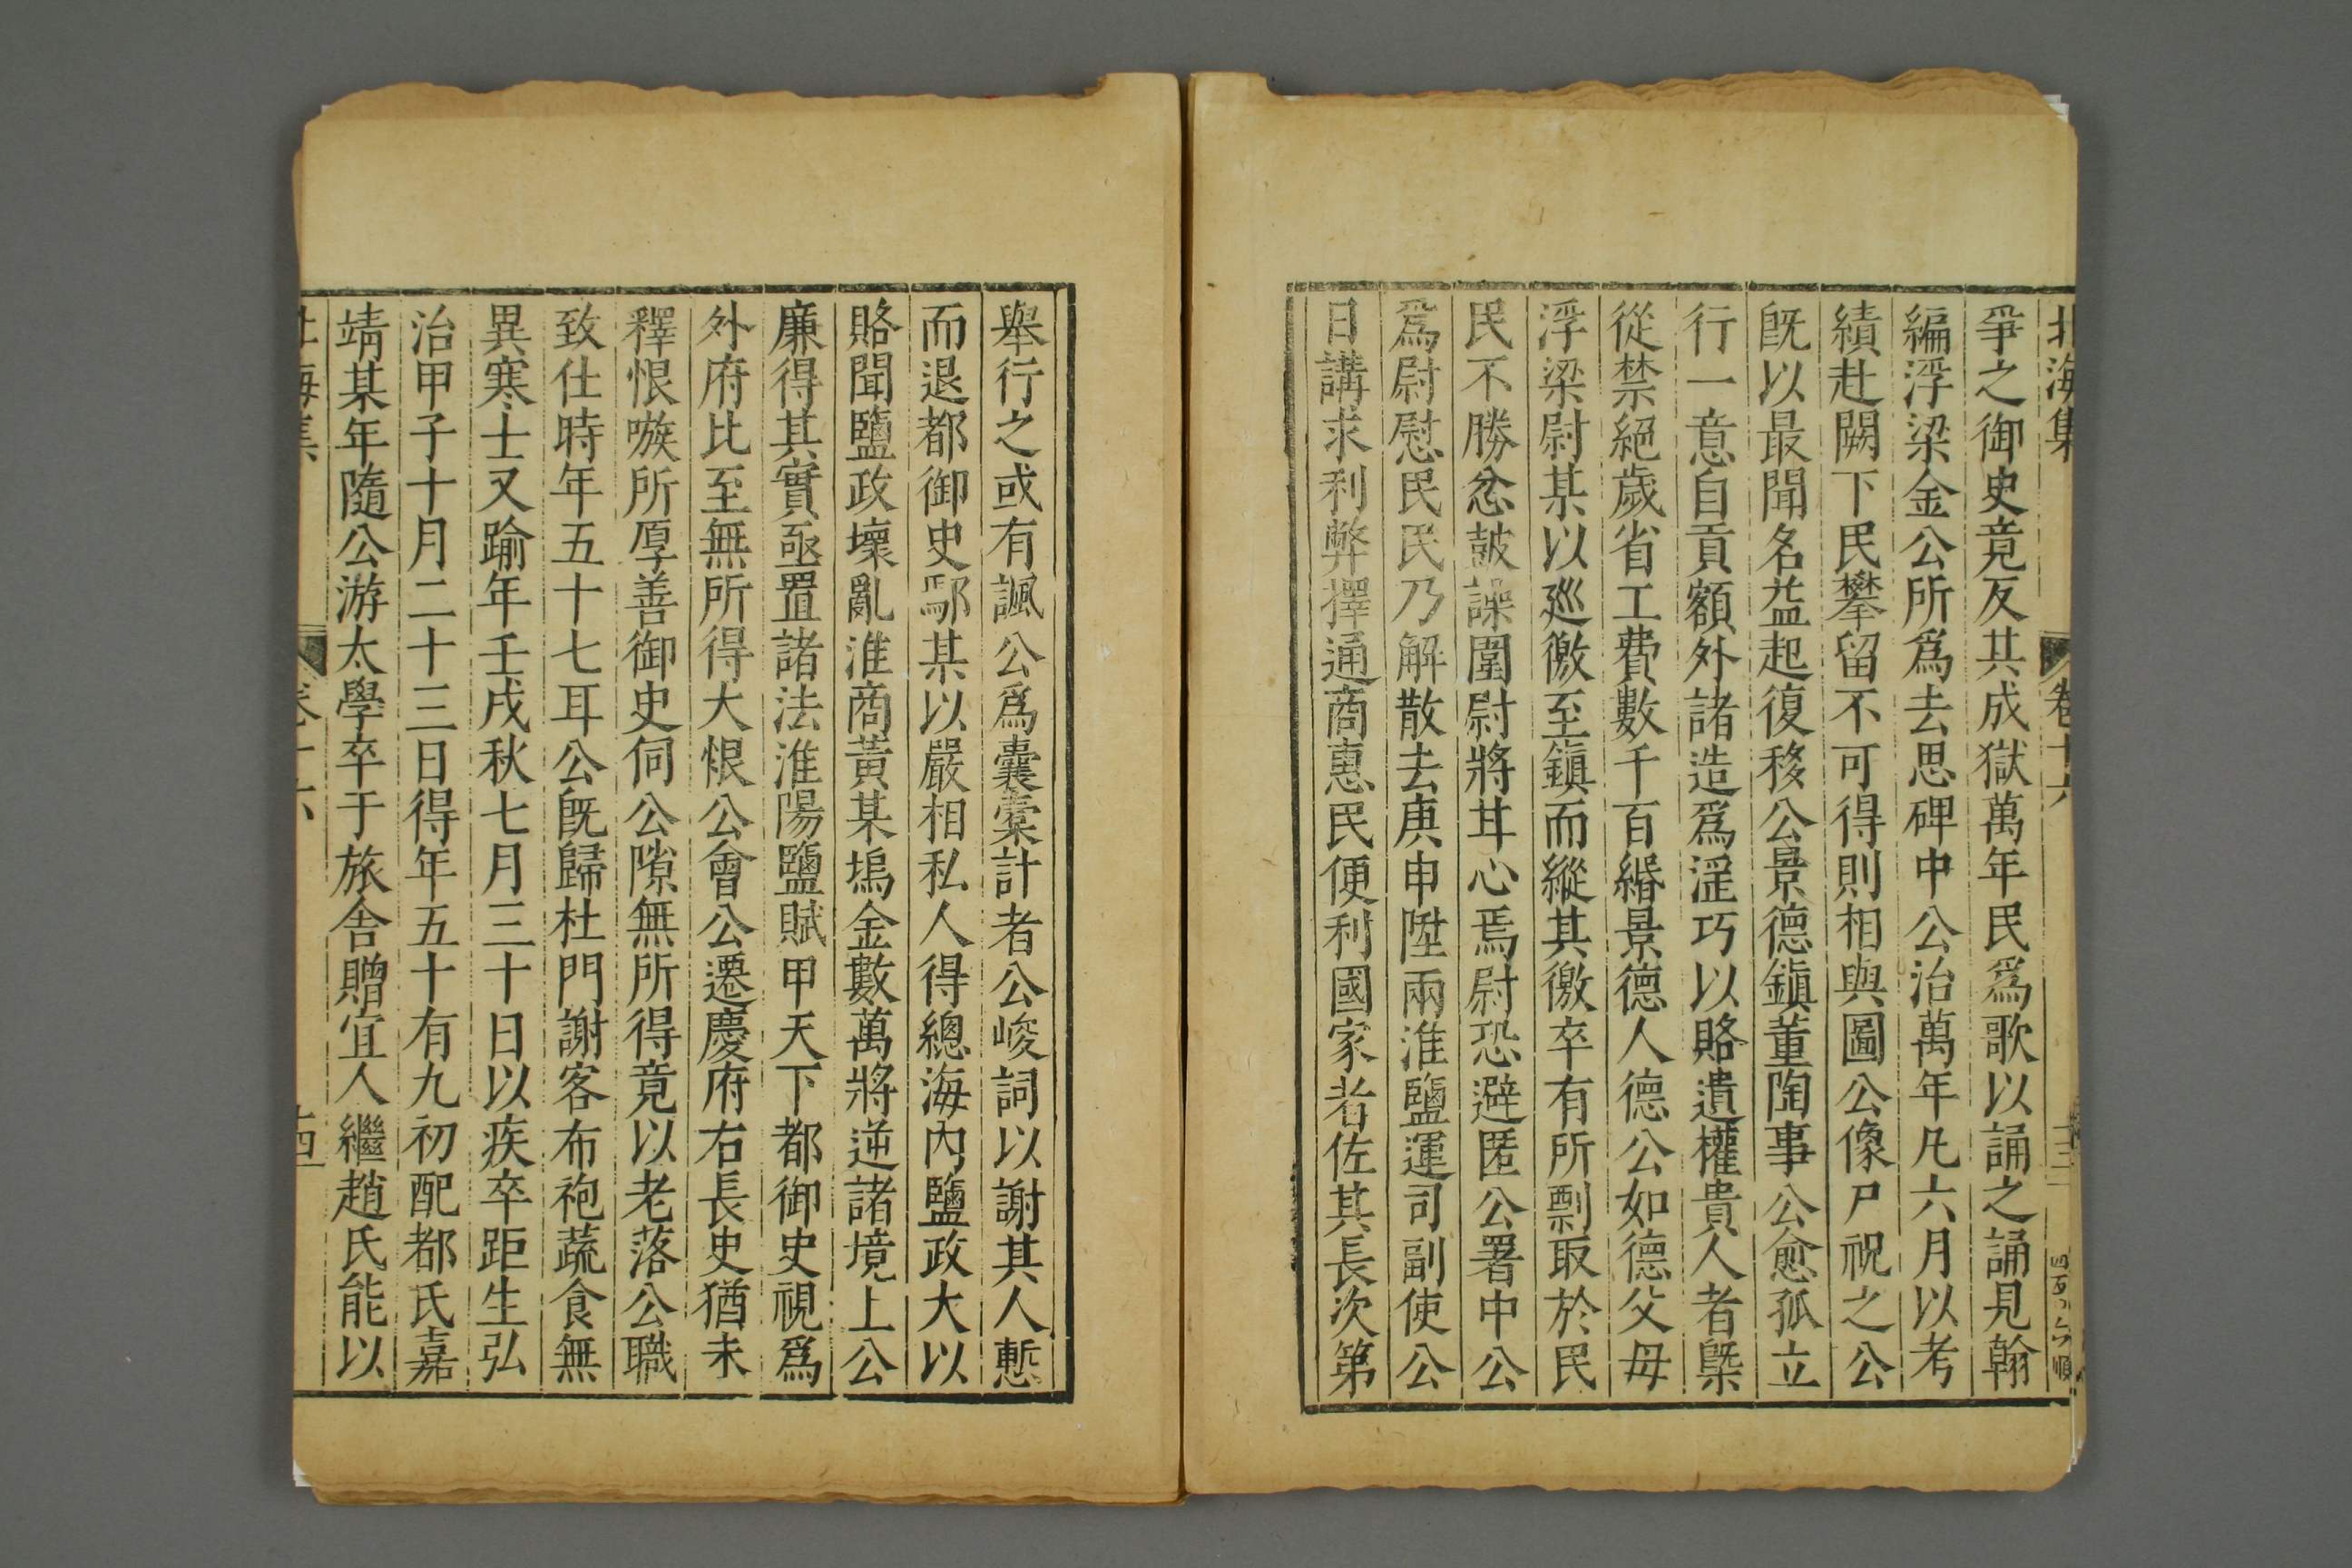 北海集 卷十六 十三 四百八六 順
爭之御史竟反其成獄萬年民爲歌以誦之誦見翰
編浮梁金公所爲去思碑中公治萬年凡六月以考
績赴闕下民攀留不可得則相與圖公像尸祝之公
旣以最聞名益起復移公景德鎭董陶事公愈孤立
行一意自貢額外諸造爲淫巧以賂遺權貴人者槩
從禁絕歲省工費數千百緡景德人德公如德父母
浮梁尉某以廵徼至鎮而縱其徼卒有所剽取於民
民不勝忿皷譟圍尉將甘心焉尉恐避匿公署中公
爲尉慰民民乃解散去庚申陞兩淮鹽運司副使公
日講求利弊擇通商惠民便利國家者佐其長次第
舉行之或有諷公爲囊橐計者公峻詞以謝其人慙
而退都御史鄢某以嚴相私人得總海內鹽政大以
賂聞鹽政壞亂淮商黃某塢金數萬將逆諸境上公
廉得其實亟置諸法淮陽鹽賦甲天下都御史視爲
外府比至無所得大恨公會公遷慶府右長史猶未
釋恨嗾所厚善御史伺公隙無所得竟以老落公職
致仕時年五十七耳公旣歸杜門謝客布袍蔬食無
異寒士又踰年壬戌秋七月三十日以疾卒距生弘
治甲子十月二十三日得年五十有九初配都氏嘉
靖某年隨公游太學卒于旅舍贈宜人繼趙氏能以
北海集 卷十六 十四